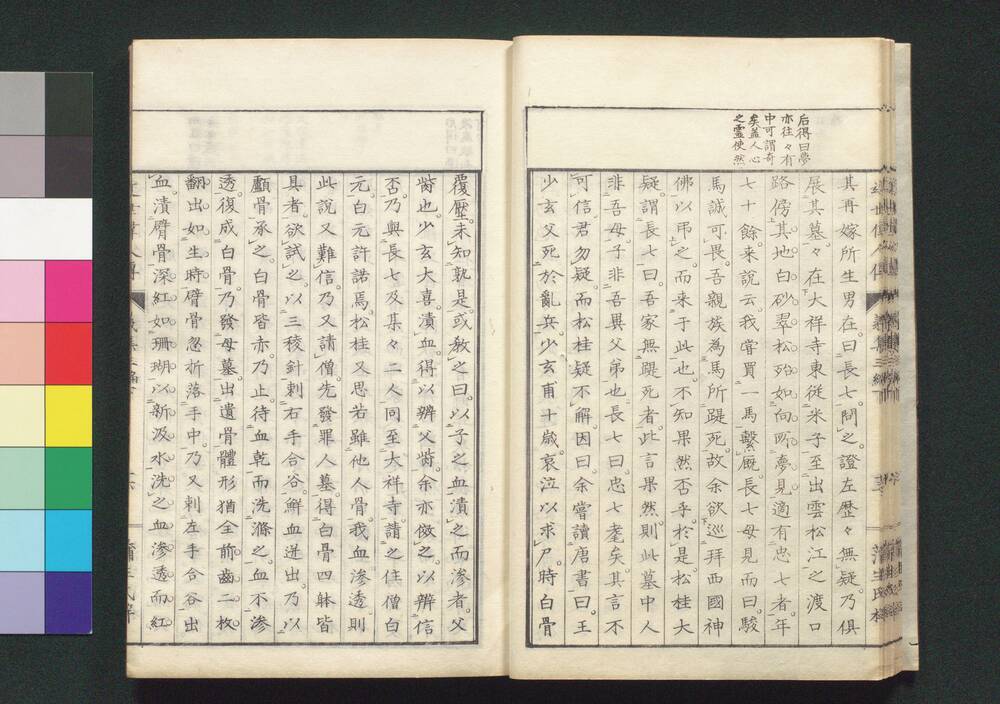 后得曰夢
亦往々有
中可謂奇
矣蓋人心
之靈使然
其再嫁所生男在曰長七問之證左歷々無疑乃俱
展其墓々在大祥寺東從米子至出雲松江之渡口
路傍其地白砂翠松殆如向所夢見適有忠七者年
七十餘来說云我嘗買一馬繫厩長七母見而曰駿
馬誠可畏吾親族為馬所踶死故余欲巡拜西國神
佛以吊之而来于此也不知果然否乎於是松桂大
疑謂長七曰吾家無踶死者此言果然則此墓中人
非吾母子非吾異父弟也長七曰忠七耄矣其言不
可信君勿疑而松桂疑不解因曰余嘗讀唐書曰王
少玄父死於亂兵少玄甫十歲哀泣以求尸時白骨
覆壓未知孰是或教之曰以子之血漬之而滲者父
胔也少玄大喜漬血得以辨父胔余亦倣之以辨信
否乃與長七及某々二人同至大祥寺請之住僧白
元白元許諾焉松桂又思若雖他人骨我血滲透則
此說又難信乃又請僧先發罪人墓得白骨四躰皆
具者欲試之以三稜針刺右手合谷鮮血迸出乃以
顱骨承之白骨皆赤乃止待血乾而洗滌之血不滲
透復成白骨乃發母墓出遺骨體形猶全前齒二枚
翻出如生時臂骨忽折落手中乃又刺左手合谷出
血漬臂骨深紅如珊瑚以新汲水洗之血滲透而紅